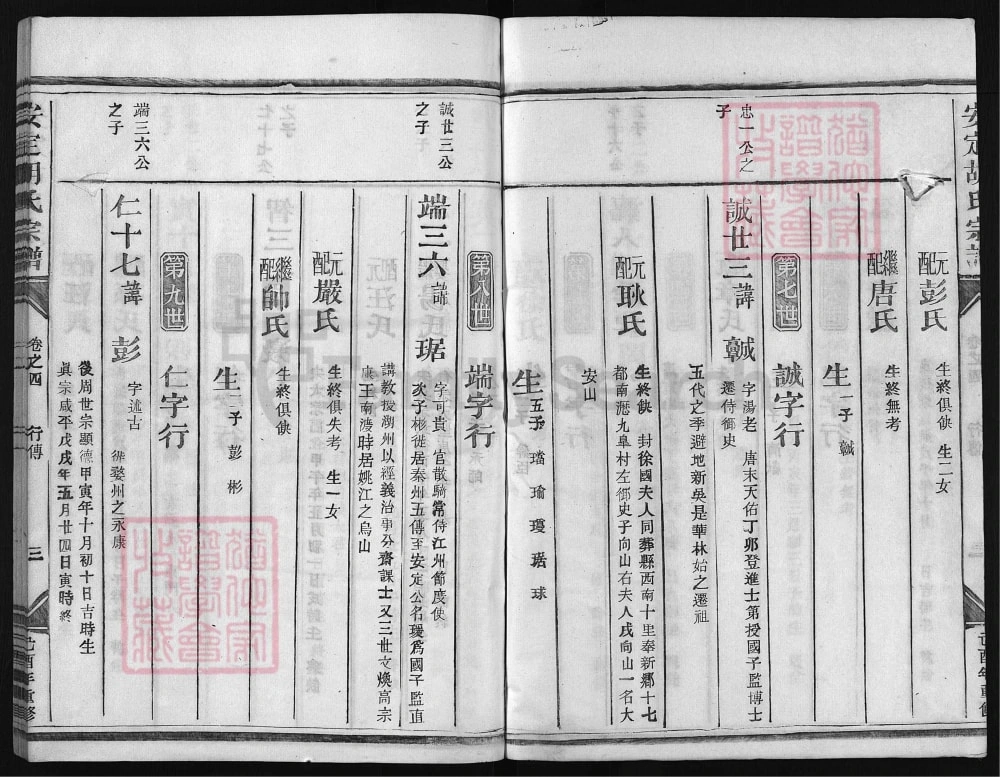 安定胡氏宗譜
元配彭氏
生終俱佚 生二女
繼配唐氏
生終無考
生一子 諴
第七世 誠字行
忠一公之子
誠世三諱 諴 字湯老 唐末天佑丁卯登進士第授國子監博士
遷侍御史
五代之季避地新吳是華林始之遷祖
元配耿氏 生終佚 封徐國夫人同葬縣西南十里奉新鄉十七
都南塸九皐村左御史子向山右夫人戌向山一名大
安山
生五子 瑫 瑜 瓊 琚 球
第八世 端字行
誠世三公之子
端三六諱 琚 字可貴 官散騎常侍江州節度使
次子彬徙居秦州五傳至安定公名瑗爲國子監直
講教授湖州以經義治事分齋課士又三世文煥高宗
康王南渡時居姚江之烏山
元配嚴氏 生終俱失考 生一女
繼配帥氏 生終俱佚
生二子 彭 彬
第九世 仁字行
端三六公之子
仁十七諱 彭 字述古 徙婺州之永康
後周世宗顯德甲寅年十月初十日吉時生
眞宗咸平戊戌年五月廿四日寅時終
安定胡氏宗譜 卷之四 行傳 三 己酉年重修